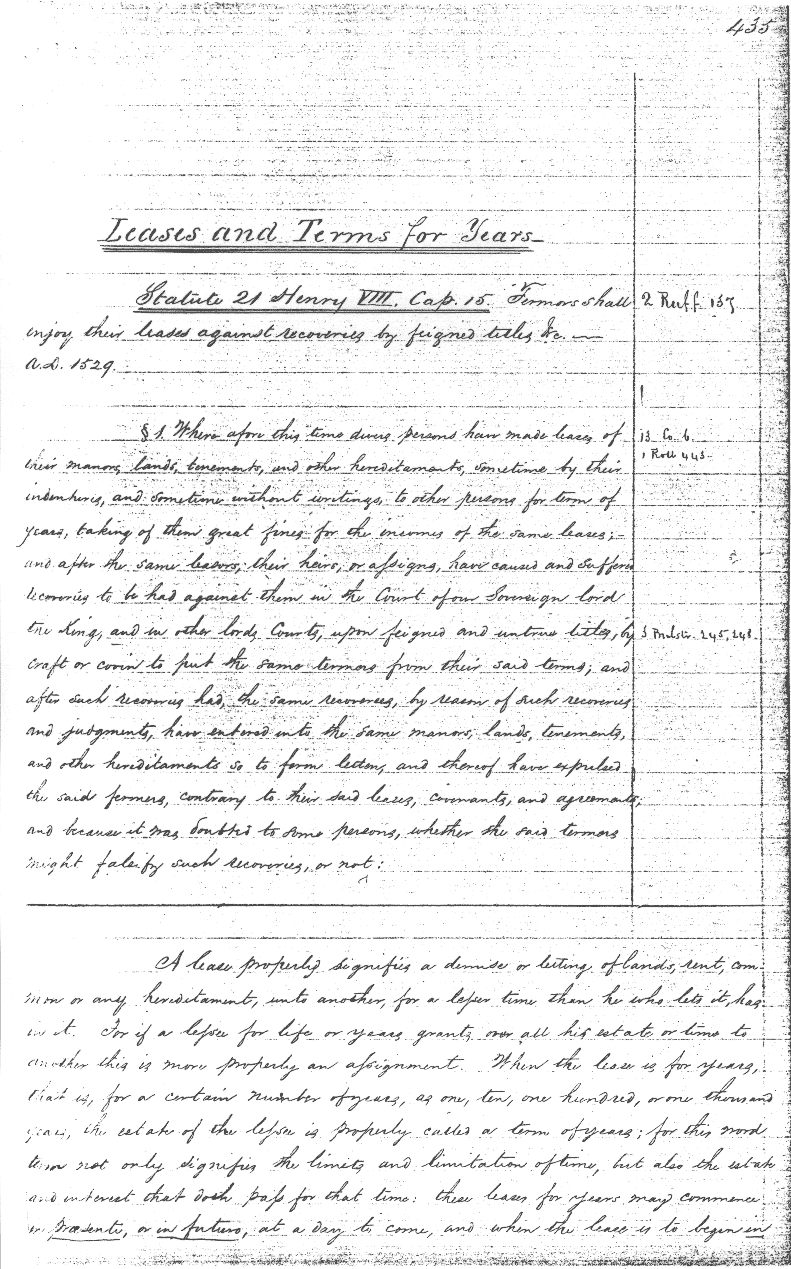 435
Leases and Terms for Years
Statute 21 Henry VIII. Cap. 15. Termors shall
2 Reeff. 157
enjoy their leases against recoveries by feigned titles &c. —
A.D. 1529.
§ 1. Where afore this time divers persons have made leases of
13 Co. 6.
1 Roll 443.
their manors, lands, tenements, and other hereditaments, sometime by their
indentures, and sometime without writings, to other persons for term of
years, taking of them great fines for the incomes of the same leases; -
and after the same leasors, their heirs, or assigns, have caused and suffered
recoveries to be had against them in the Court of our Sovereign lord
the King, and in other lords Courts, upon feigned and untrue titles, by
245, 248.
craft or covin to put the same termers from their said terms; and
after such recoveries had, the same recoverees, by reason of such recoveries
and judgments, have entered into the same manors, lands, tenements,
and other hereditaments so to ferm letten, and thereof have expulsed
the said fermers, contrary to their said leases, covenants, and agreements;
and because it was doubted to some persons, whether the said termers
might falsify such recoveries, or not:
A lease properly signifies a demise or letting of lands, rent, com-
mon or any hereditament, unto another, for a lesser time than he who lets it, has
in it. For if a lessee for life or years grants over all his estate or time to
another this is more properly an assignment. When the lease is for years,
that is, for a certain number of years, as one, ten, one hundred, or one thousand
years, the estate of the lessee is properly called a term of years; for this word
term not only signifies the limits and limitation of time, but also the estate
and interest that doth pass for that time: these leases for years may commence
in præsente, or in futuro, at a day to come, and when the lease is to begin in